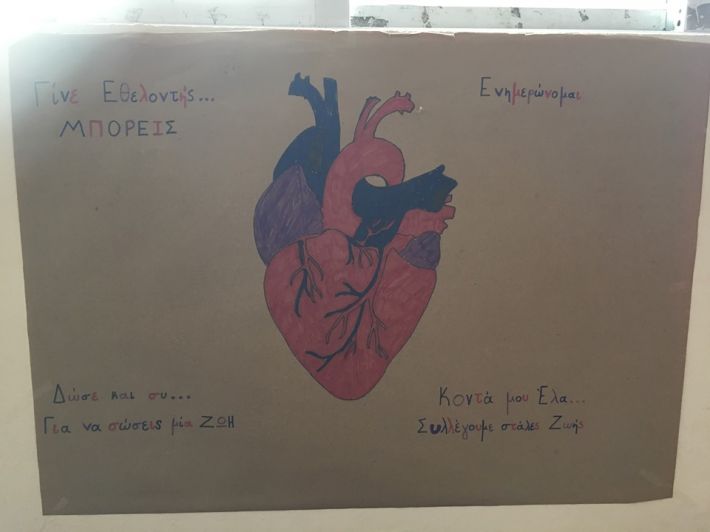 Γίνε Εθελοντής...
ΜΠΟΡΕΙΣ
Ενημερώνομαι
Δώσε και συ...
Για να σώσεις μία ΖΩΗ
Κοντά μου Έλα...
Συλλέγουμε στάλες Ζωής